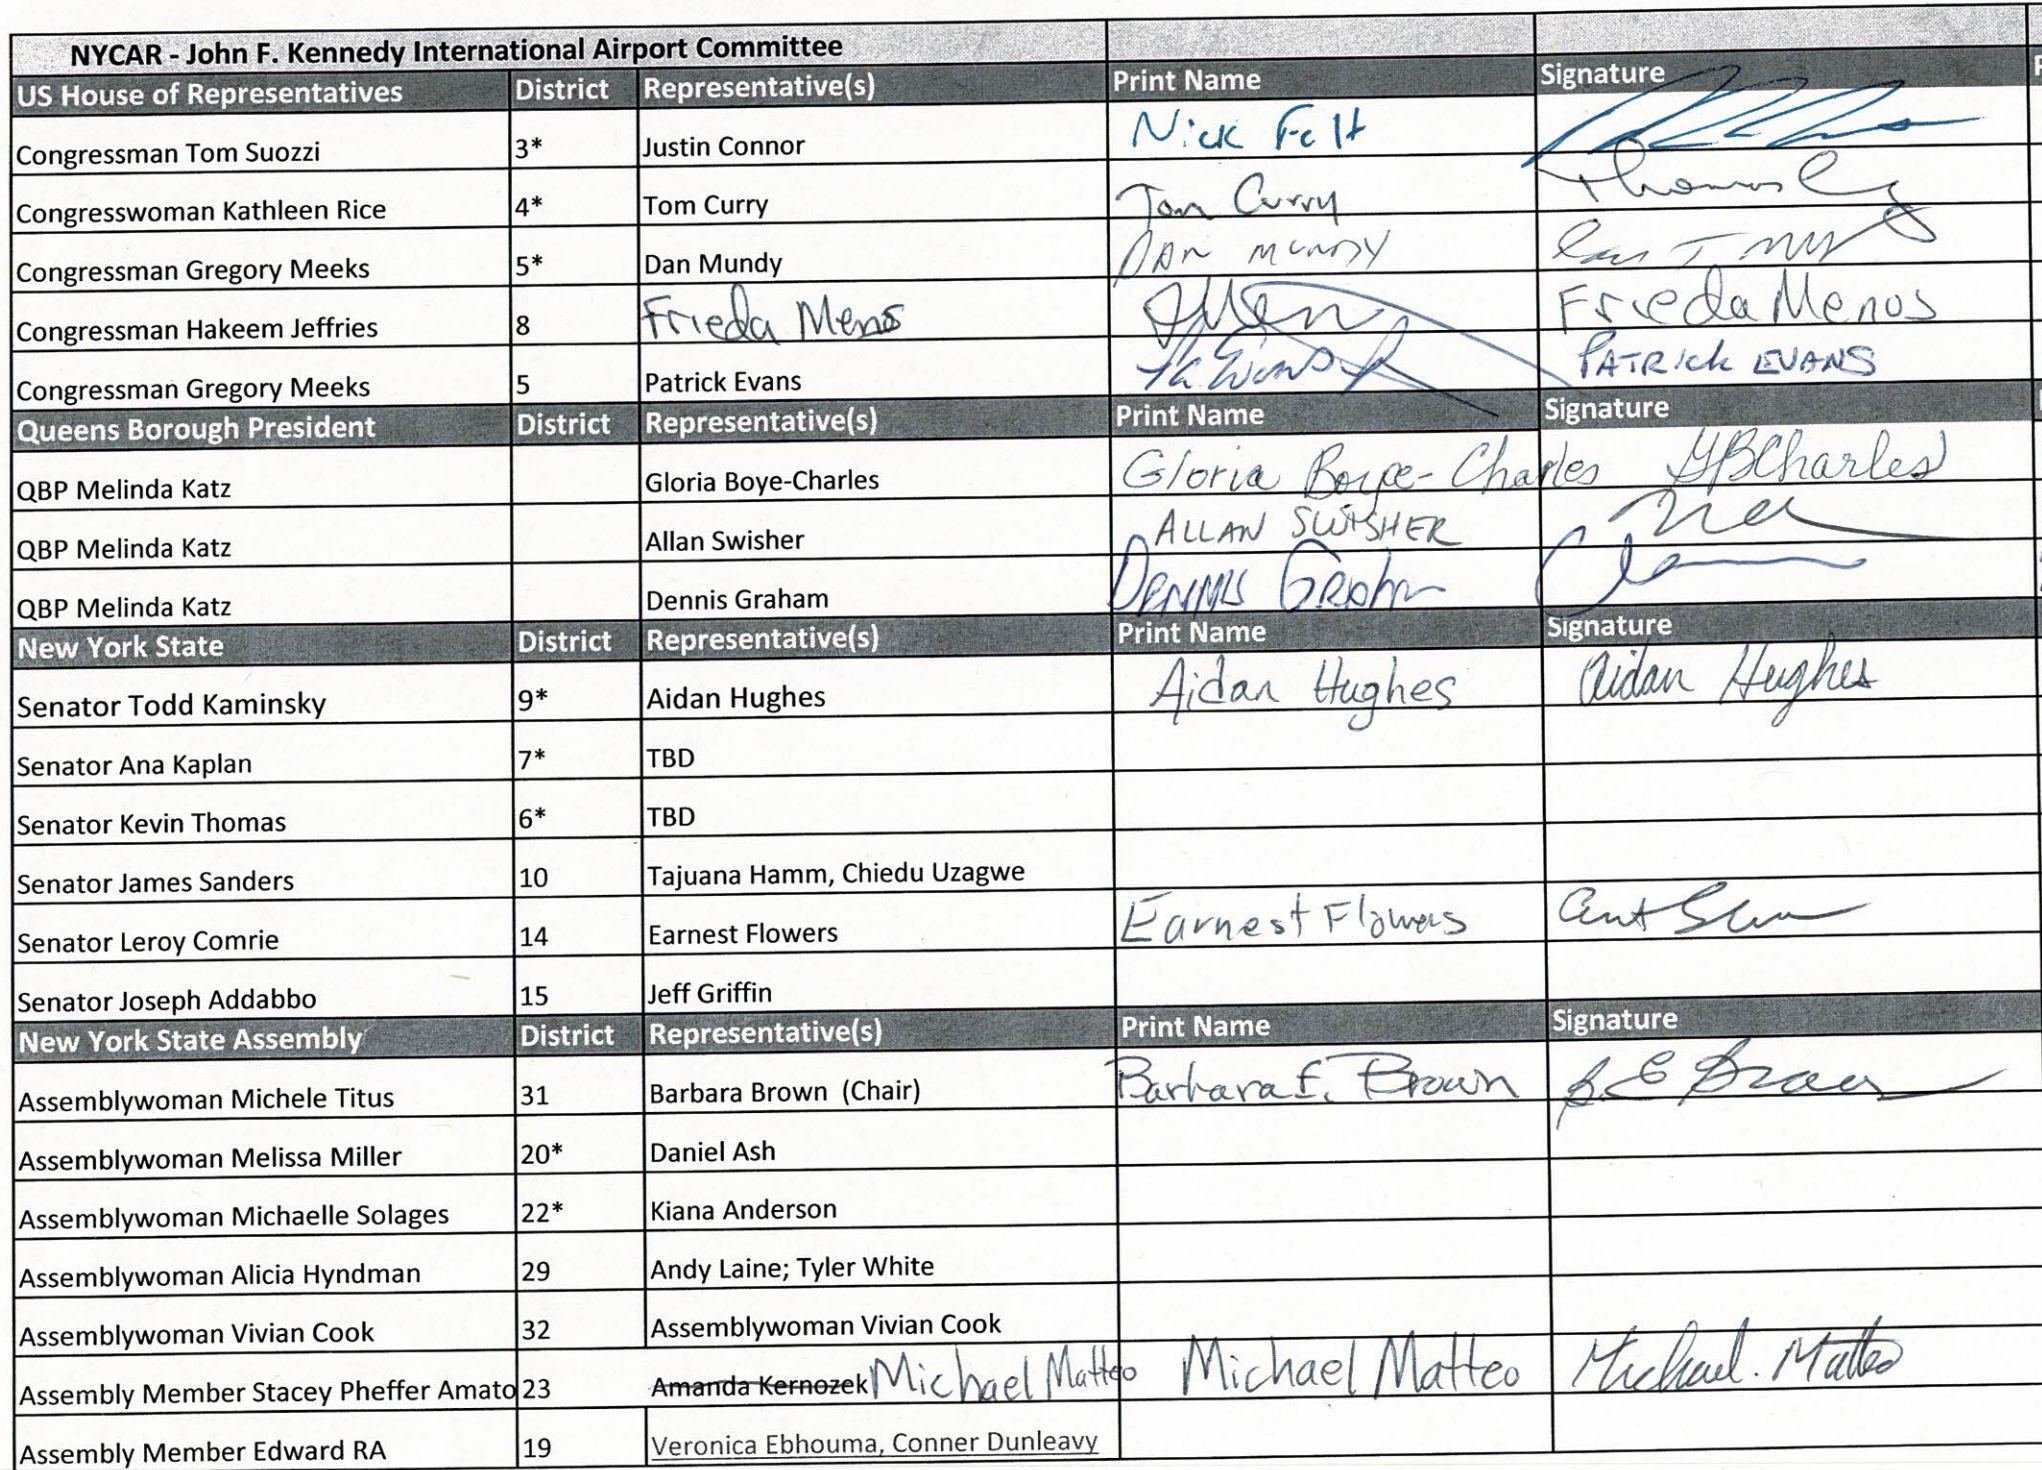 NYCAR - John F. Kennedy International Airport Committee
US House of Representatives District Representative(s) Print Name Signature
Congressman Tom Suozzi 3* Justin Connor Nick Felt
Congresswoman Kathleen Rice 4* Tom Curry Tom Curry Thomas
Congressman Gregory Meeks 5* Dan Mundy DAN MUNDY
Congressman Hakeem Jeffries 8 Frieda Menos Frieda Menos
Congressman Gregory Meeks 5 Patrick Evans PATRICK EVANS
Queens Borough President District Representative(s) Print Name Signature
QBP Melinda Katz Gloria Boye-Charles Gloria Boype-Charles GBCharles
QBP Melinda Katz Allan Swisher ALLAN SWISHER
QBP Melinda Katz Dennis Graham DENNIS GRAham
New York State District Representative(s) Print Name Signature
Senator Todd Kaminsky 9* Aidan Hughes Aidan Hughes Aidan Hughes
Senator Ana Kaplan 7* TBD
Senator Kevin Thomas 6* TBD
Senator James Sanders 10 Tajuana Hamm, Chiedu Uzagwe
Senator Leroy Comrie 14 Earnest Flowers Earnest Flowers
Senator Joseph Addabbo 15 Jeff Griffin
New York State Assembly District Representative(s) Print Name Signature
Assemblywoman Michele Titus 31 Barbara Brown (Chair) Barbara E. Brown B.E Brown
Assemblywoman Melissa Miller 20* Daniel Ash
Assemblywoman Michaelle Solages 22* Kiana Anderson
Assemblywoman Alicia Hyndman 29 Andy Laine; Tyler White
Assemblywoman Vivian Cook 32 Assemblywoman Vivian Cook
Assembly Member Stacey Pheffer Amato 23 Amanda Kernozek Michael Matteo Michael Matteo Michael. Matteo
Assembly Member Edward RA 19 Veronica Ebhouma, Conner Dunleavy